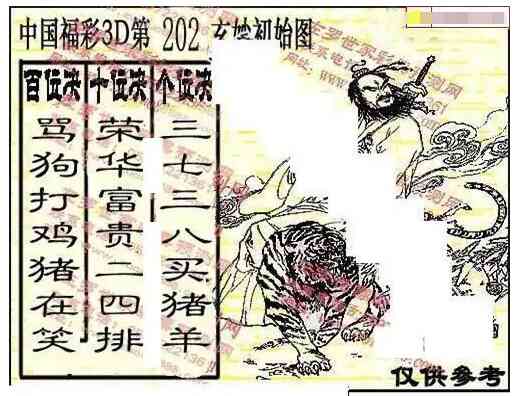 中国福彩3D第 202 玄妙初始图
百位决 十位决 个位决
骂狗打鸡猪在笑
荣华富贵二四排
三七三八买猪羊
仅供参考